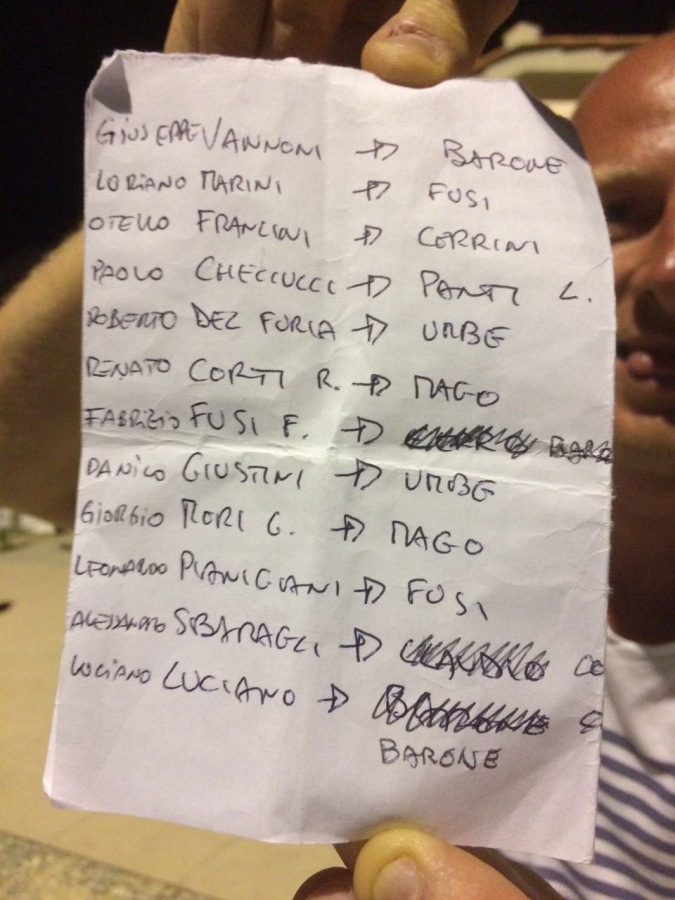 GIUSEPPE VANNONI → BARONE
LORIANO MARINI → FUSI
OTELLO FRANCINI → CERRINI
PAOLO CHECCUCCI → PANTI L.
ROBERTO DEL FURIA → URBE
RENATO CORTI R. → MAGO
FABRIZIO FUSI F. →
DANILO GIUSTINI → URBE
GIORGIO MORI G. → MAGO
LEONARDO PIANIGIANI → FUSI
ALESSANDRO SBARAGLI →
LUCIANO LUCIANO →
BARONE